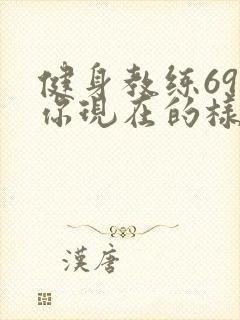 健身教练69
你現在的樣
漢唐